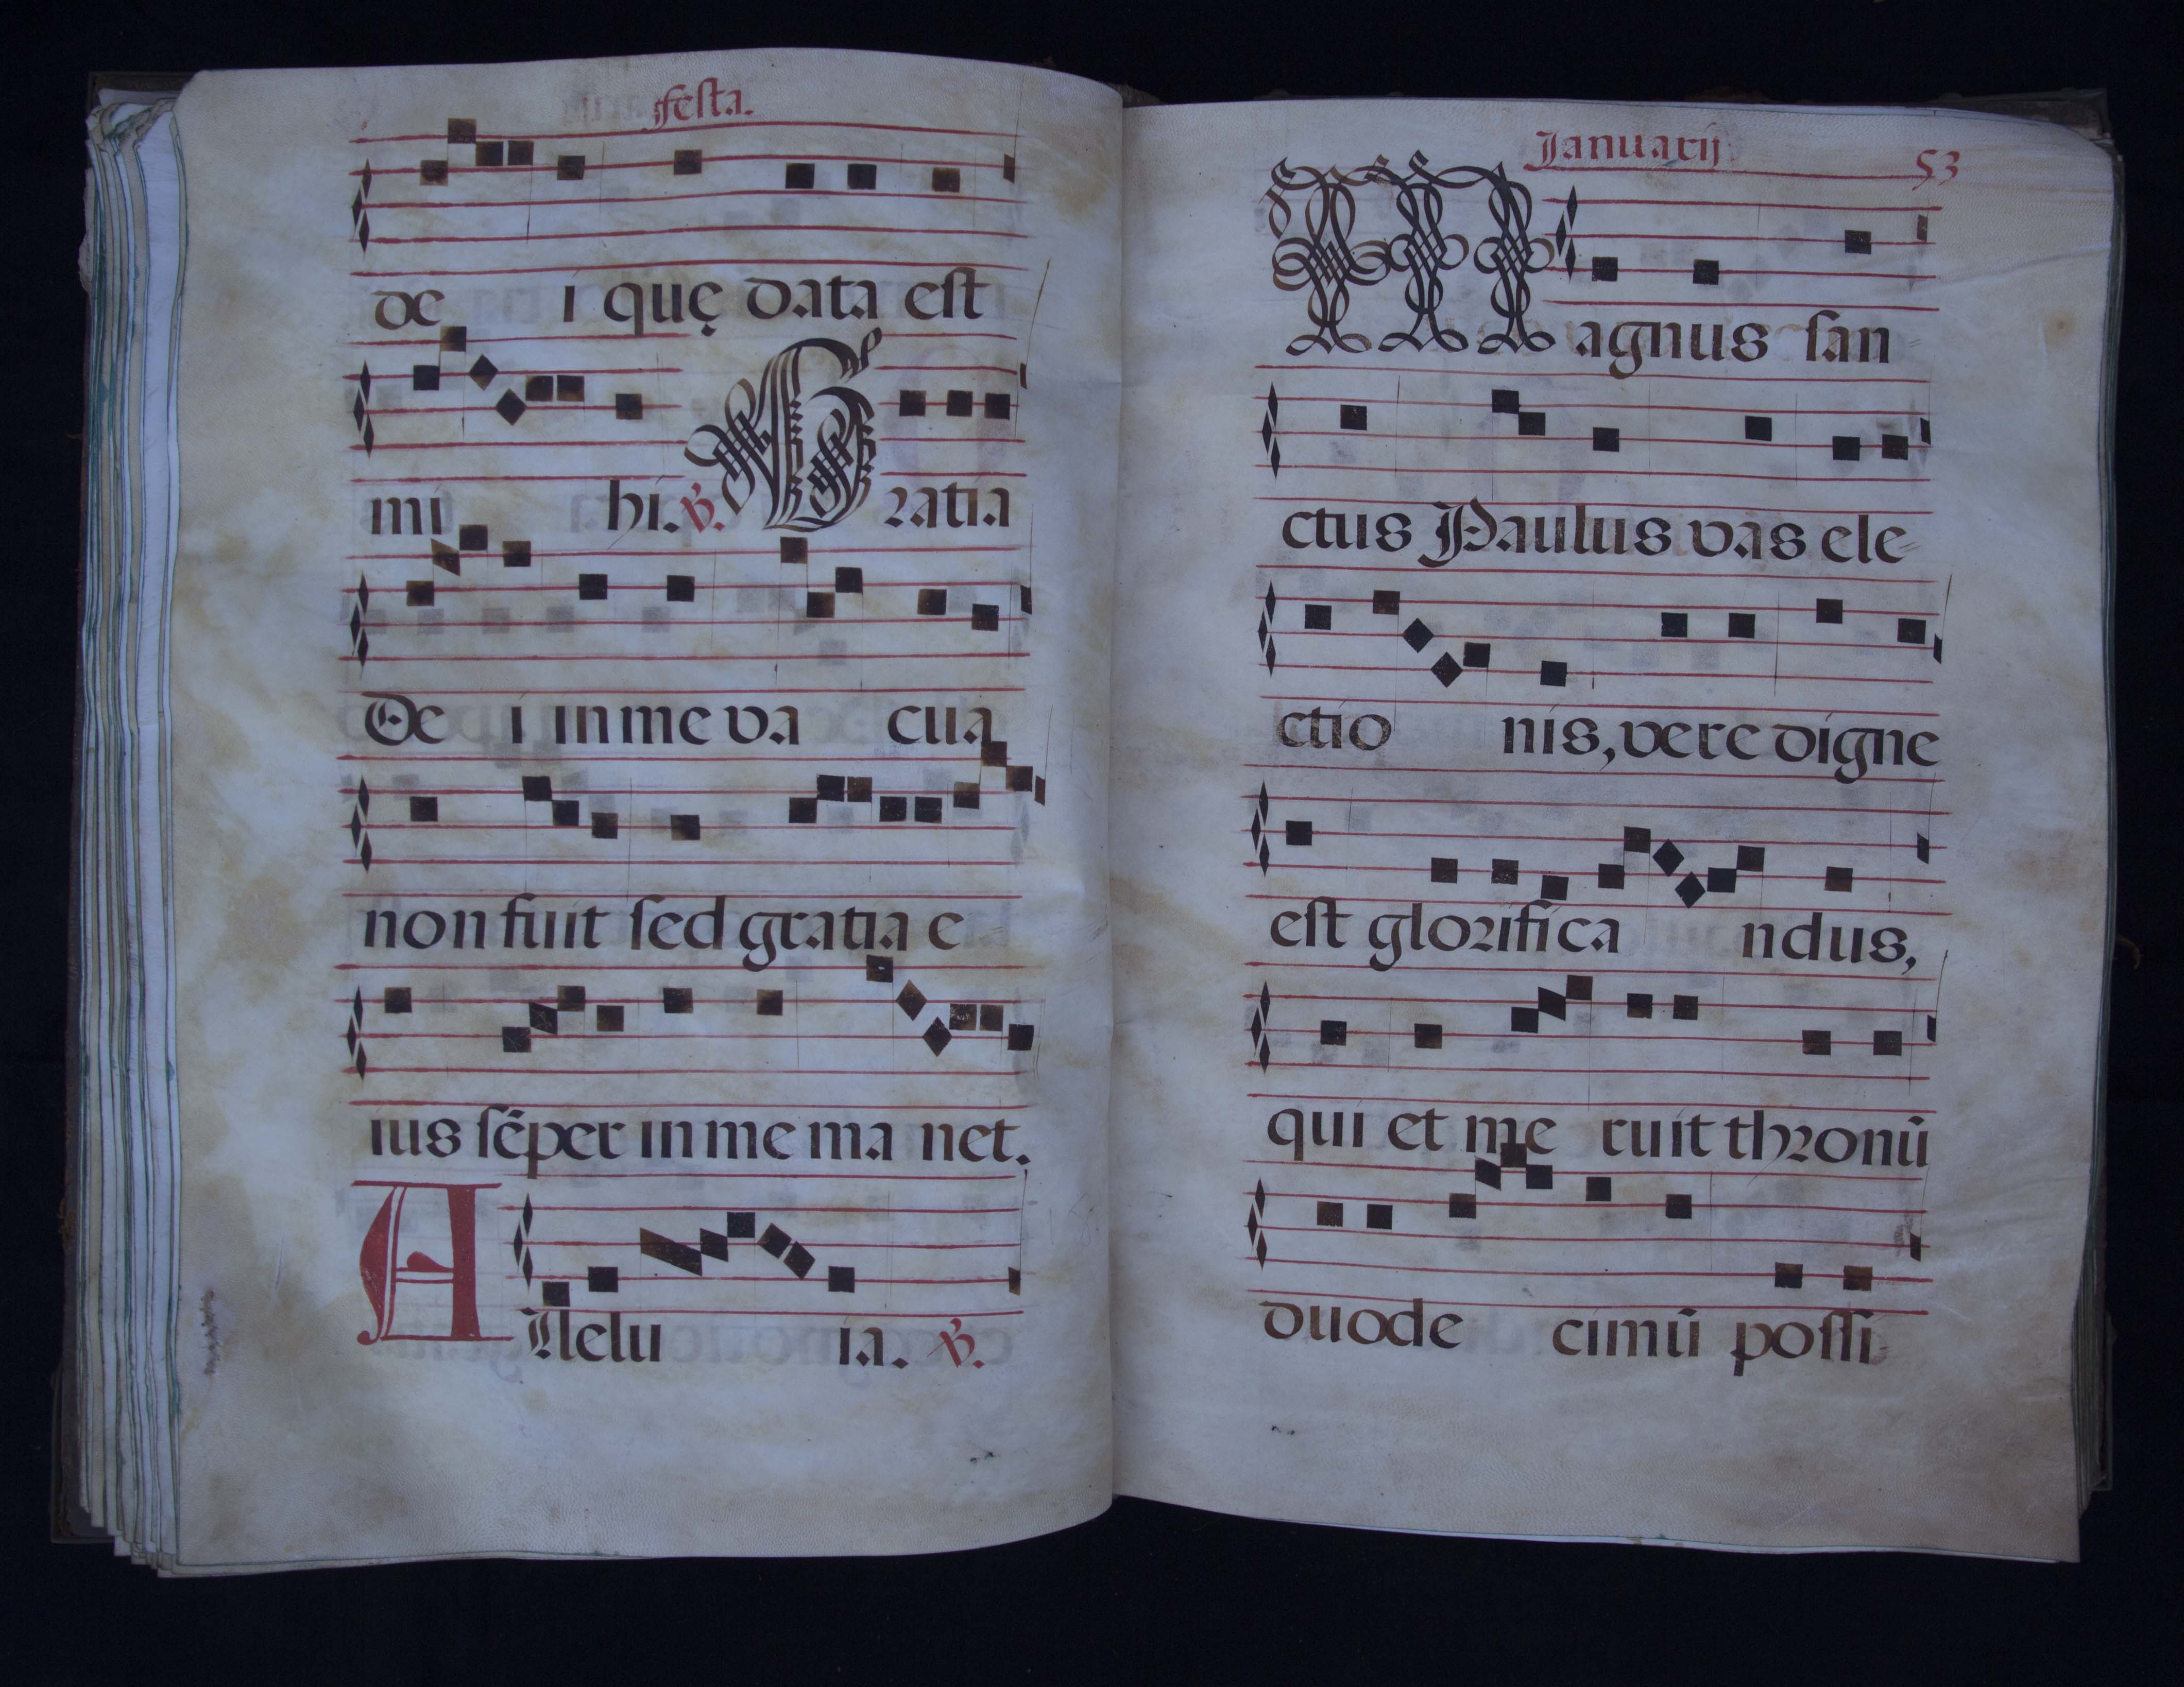 festa.
de i quę data est
mi hi. ℣. Gratia
De i in me va cua
non fuit ſed gratia e
ius ſẽper in me ma net.
Allelu ia. ℣.
Januarij 53
Magnus ſan
ctus Paulus vas ele
ctio nis, vere digne
est glorifica ndus,
qui et me ruit thronũ
duode cimũ poſſi